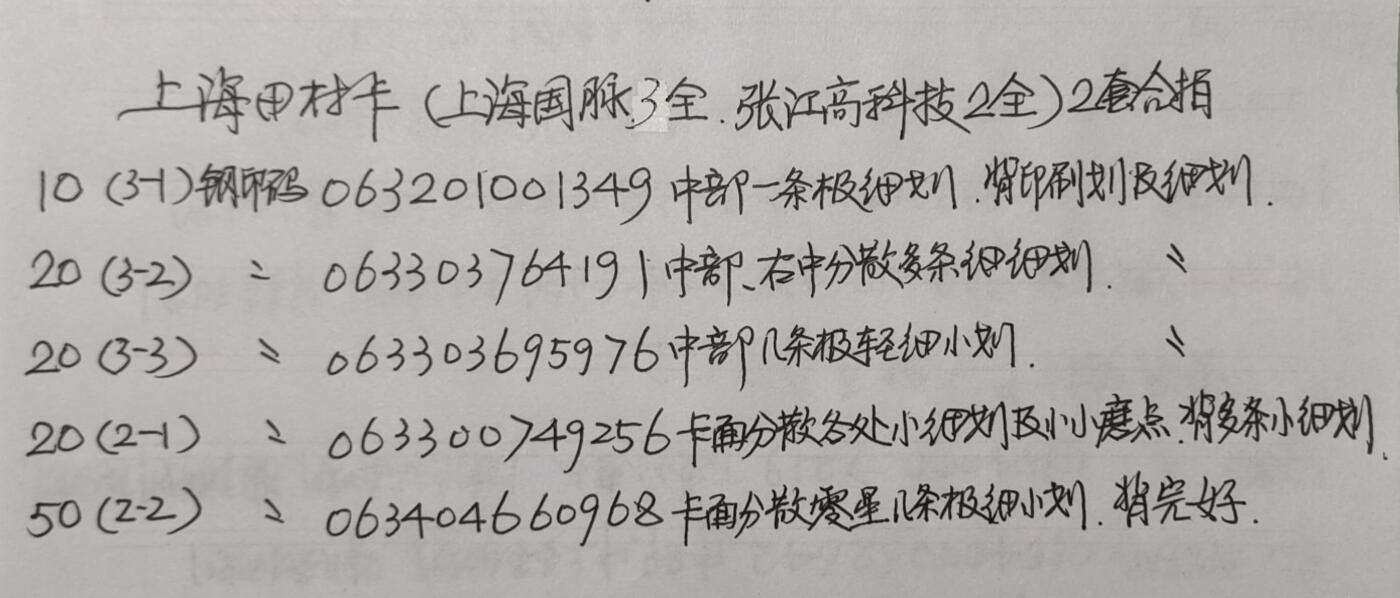 上海田村卡(上海国脉3全.张江高科技2全)2套合拍
10(3-1)钢印码063201001349中部一条极细划.背印刷划及细划.
20(3-2) 〃 063303764191中部、右中分散多条细细划. 〃
20(3-3) 〃 063303695976中部几条极轻细小划. 〃
20(2-1) 〃 063300749256卡面分散各处小细划及小小磨点.背多条小细划.
50(2-2) 〃 063404660968卡面分散零星几条极细小划.背完好.